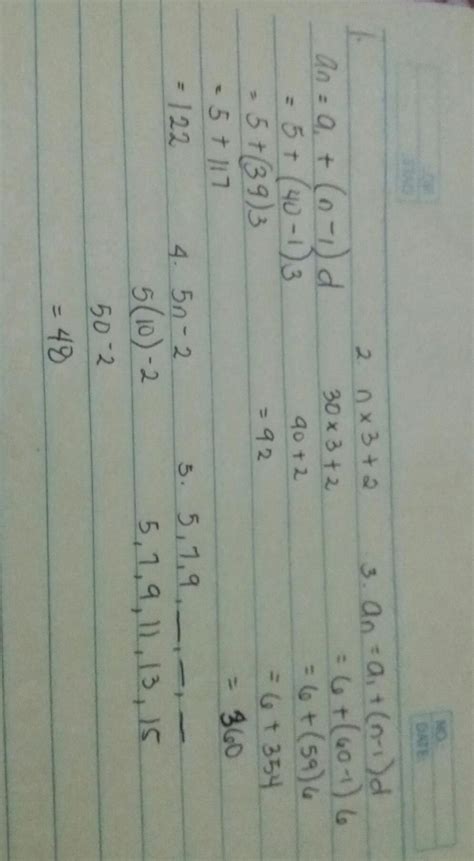 NO.
DATE
1.
an = a₁ + (n-1)d
= 5 + (40-1)3
= 5+(39)3
= 5 + 117
= 122
2 n x 3 + 2
30 x 3 + 2
90 + 2
= 92
3. an = a₁ + (n-1)d
= 6 + (60-1) 6
= 6 + (59) 6
= 6 + 354
= 360
4. 5n - 2
5(10) - 2
50 - 2
= 48
5. 5, 7, 9, __, __, __
5, 7, 9, 11, 13, 15